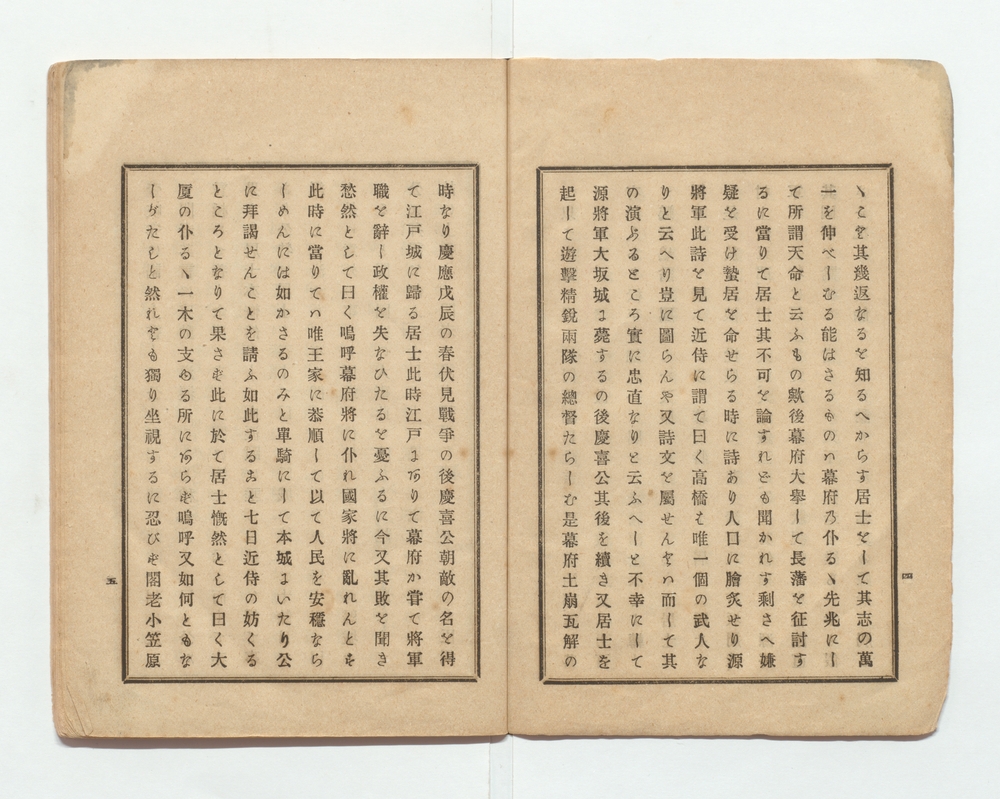 ヽこと其幾返なるを知るへからす居士をして其志の萬
一を伸べしむる能はさるものハ幕府乃仆るヽ先兆にし
て所謂天命と云ふもの歟後幕府大擧して長藩を征討す
るに當りて居士其不可を論すれども聞かれす剩さへ嫌
疑を受け蟄居を命せらる時に詩あり人口に膾炙せり源
將軍此詩を見て近侍に謂て曰く高橋も唯一個の武人な
りと云へり豈に圖らんや又詩文を屬せんをハ而して其
の演ぶるところ實に忠直なりと云ふへしと不幸にして
源將軍大坂城に薨するの後慶喜公其後を續き又居士を
起して遊擊精銳兩隊の總督たらしむ是幕府土崩瓦解の
四
時なり慶應戊辰の春伏見戰爭の後慶喜公朝敵の名を得
て江戸城に歸る居士此時江戸にありて幕府か嘗て將軍
職を辭し政權を失なひたるを憂ふるに今又其敗を聞き
愁然として曰く嗚呼幕府將に仆れ國家將に亂れんとす
此時に當りてハ唯王家に恭順して以て人民を安穩なら
しめんには如かさるのみと單騎にして本城にいたり公
に拜謁せんことを請ふ如此すること七日近侍の妨くる
ところとなりて果さず此に於て居士慨然として曰く大
厦の仆るヽ一木の支ゆる所にあらず嗚呼又如何ともな
しがたしと然れども獨り坐視するに忍びず閣老小笠原
五